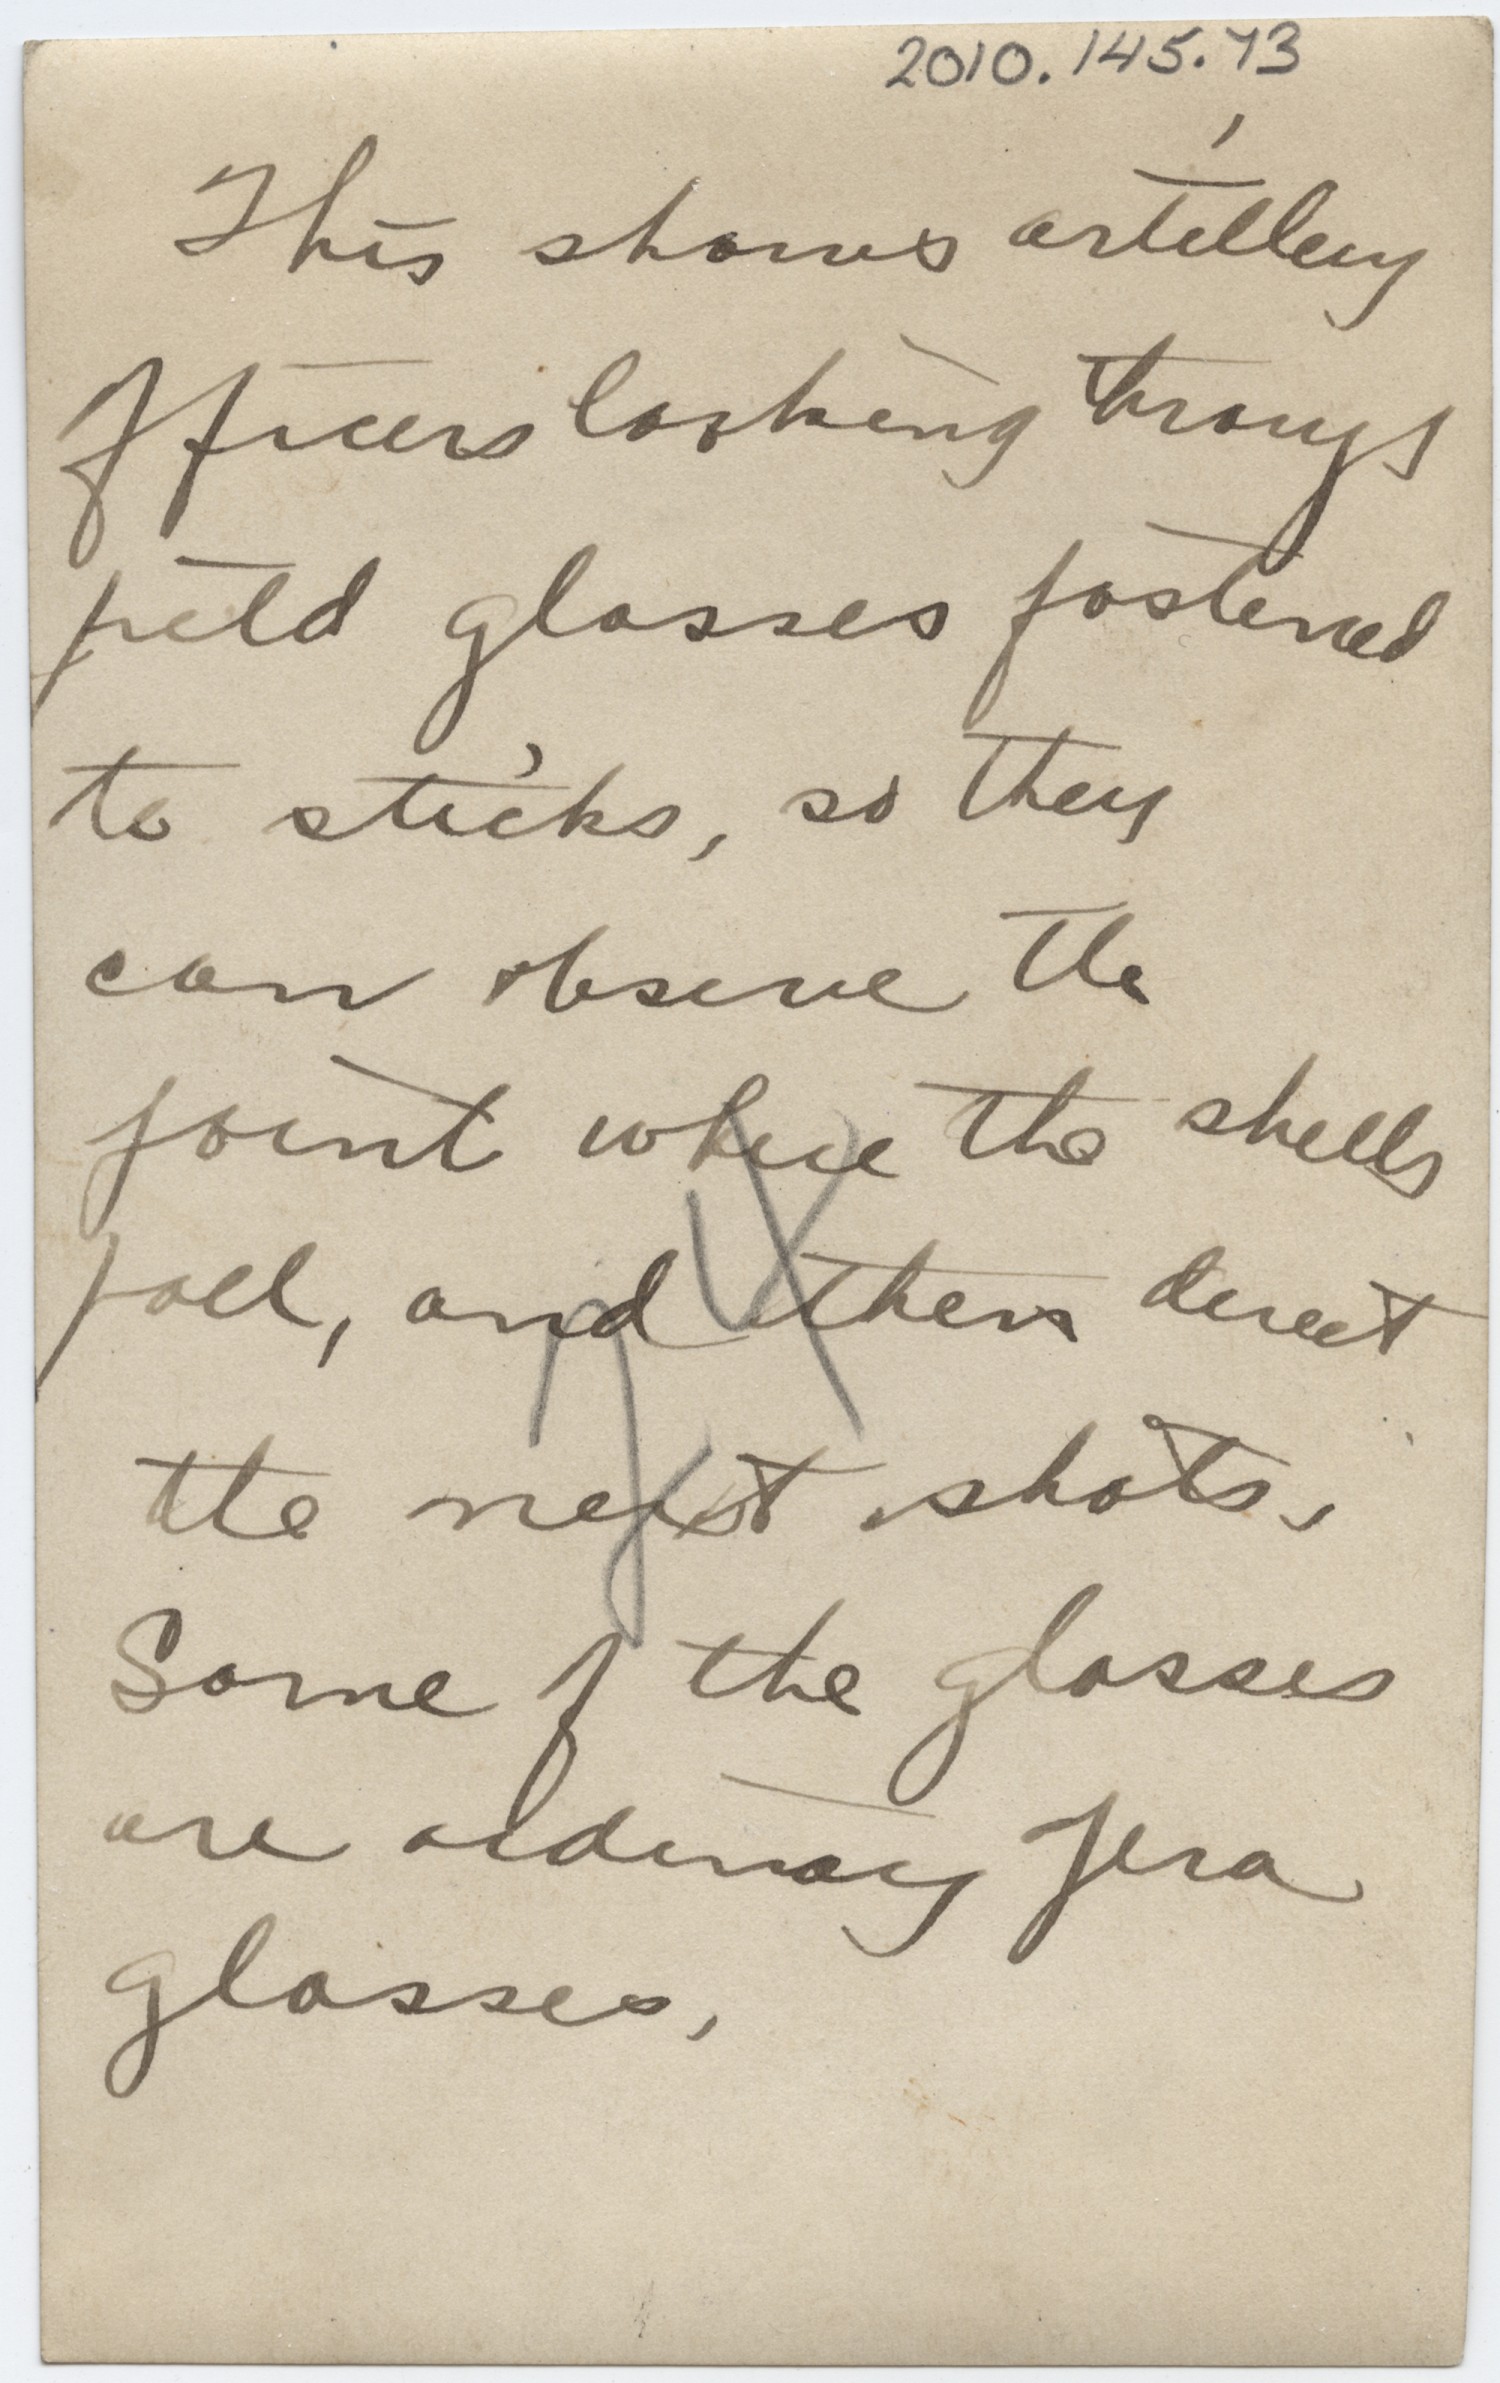 2010.145.73
This shows artillery
officers looking through
field glasses fastened
to sticks, so they
can observe the
point where the shells
fall, and then direct
the next shots.
Some of the glasses
are ordinary opera
glasses.